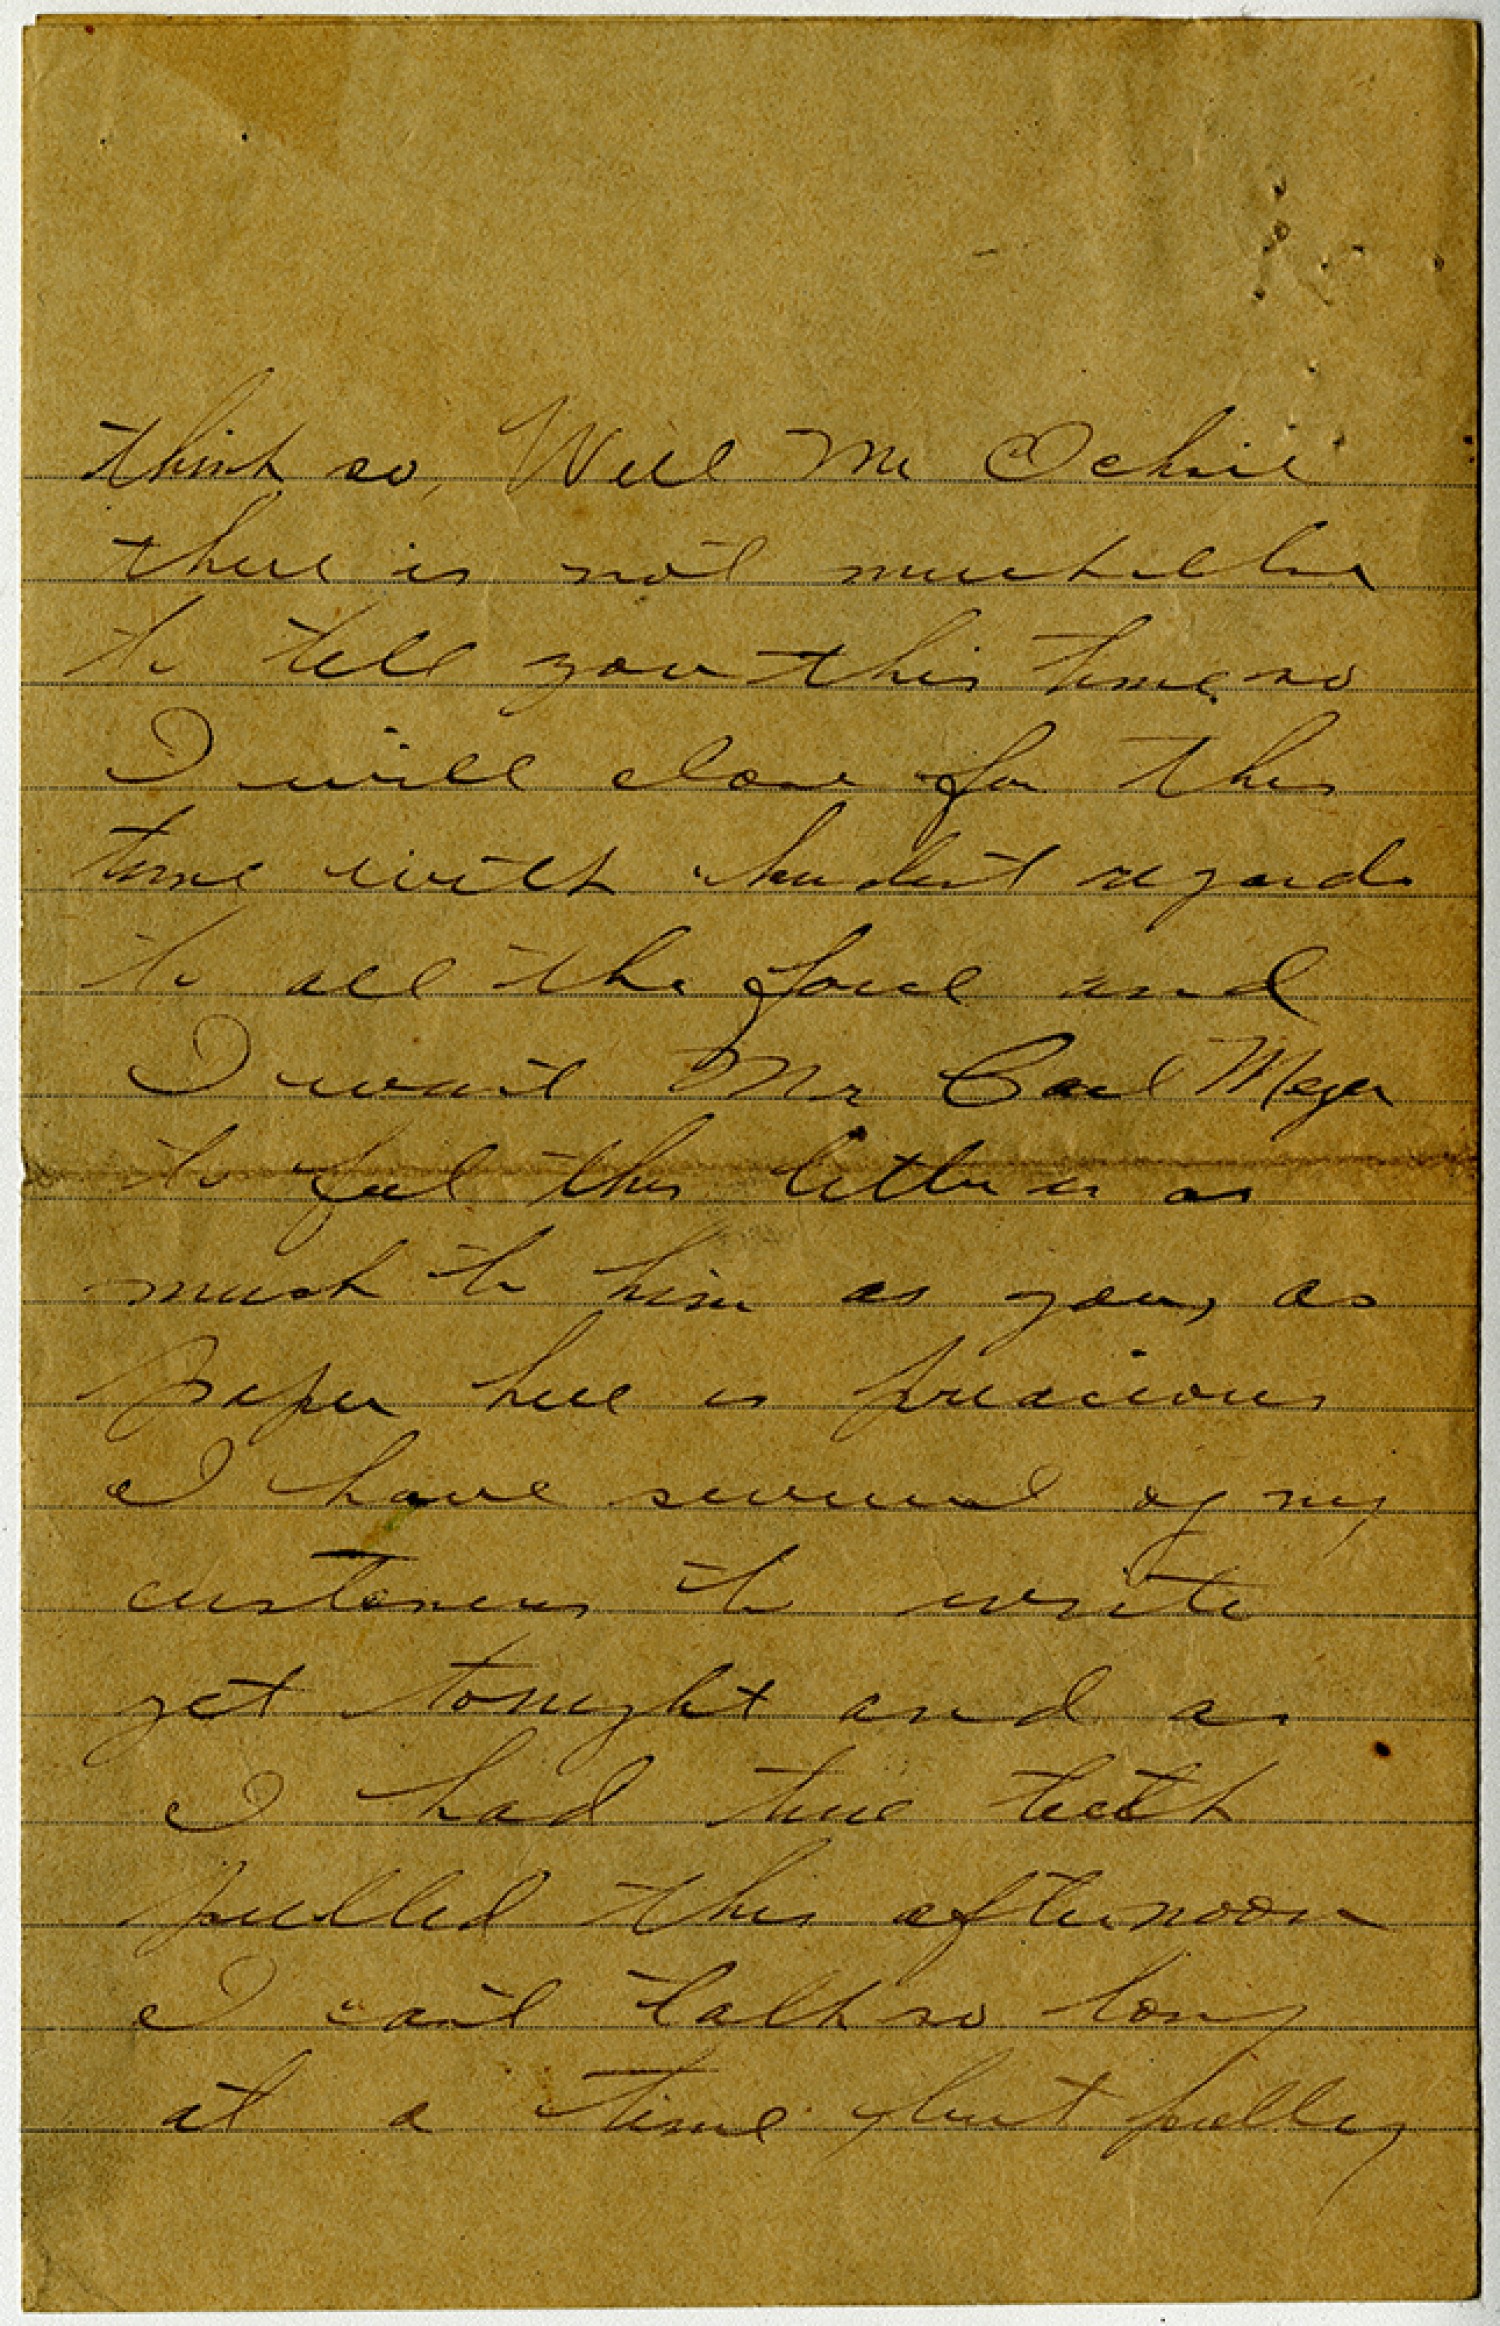 think so, Well Mr Ochil
there is not much else
to tell you this time so
I will close for this
time with kindest regards
to all the force and
I want Mr Carl Meyer
to feel this letter is as
much to him as you, as
paper here is precious
I have several of my
customers to write
yet tonight and as
I had three teeth
pulled this afternoon
I can't talk so long
at a time but